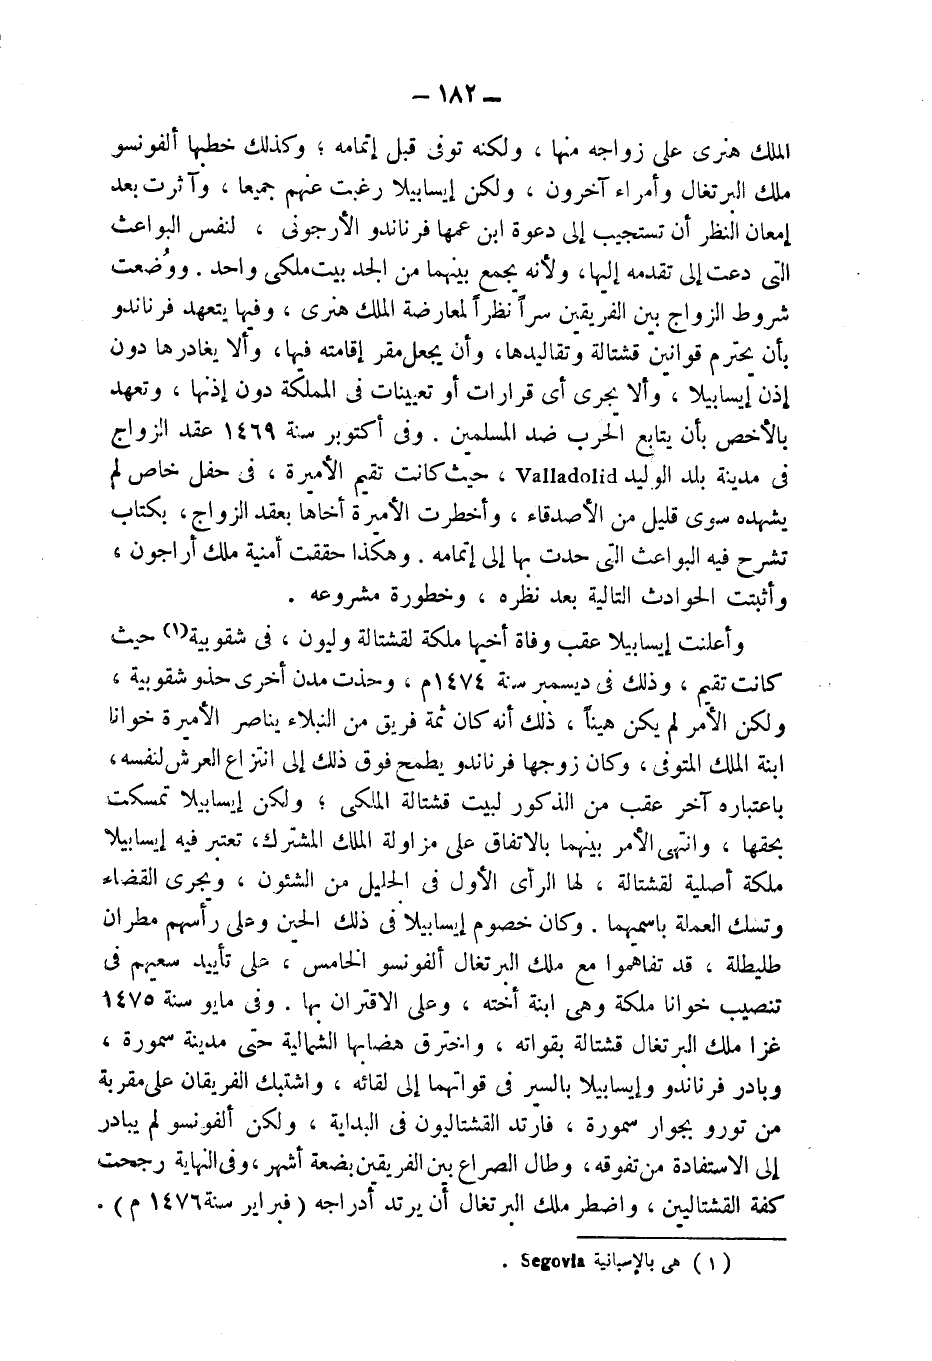 — ١٨٢ —
الملك هنرى على زواجه منها ، ولكنه توفى قبل إتمامه ؛ وكذلك خطبها ألفونسو
ملك البرتغال وأمراء آخرون ، ولكن إيسابيلا رغبت عنهم جميعا ، وآثرت بعد
إمعان النظر أن تستجيب إلى دعوة ابن عمها فرناندو الأرجونى ، لنفس البواعث
التى دعت إلى تقدمه إليها، ولأنه يجمع بينهما من الجد بيت ملكى واحد . ووُضعت
شروط الزواج بين الفريقين سراً نظراً لمعارضة الملك هنرى ، وفيها يتعهد فرناندو
بأن يحترم قوانين قشتالة وتقاليدها، وأن يجعل مقر إقامته فيها، وألا يغادرها دون
إذن إيسابيلا ، وألا يجرى أى قرارات أو تعيينات فى المملكة دون إذنها ، وتعهد
بالأخص بأن يتابع الحرب ضد المسلمين . وفى أكتوبر سنة ١٤٦٩ عقد الزواج
فى مدينة بلد الوليد Valladolid ، حيث كانت تقيم الأميرة ، فى حفل خاص لم
يشهده سوى قليل من الأصدقاء ، وأخطرت الأميرة أخاها بعقد الزواج، بكتاب
تشرح فيه البواعث التى حدت بها إلى إتمامه . وهكذا حققت أمنية ملك أراجون ،
وأثبتت الحوادث التالية بعد نظره ، وخطورة مشروعه .
وأعلنت إيسابيلا عقب وفاة أخيها ملكة لقشتالة وليون ، فى شقوبية(١) حيث
كانت تقيم ، وذلك فى ديسمبر سنة ١٤٧٤م ، وحذت مدن أخرى حذو شقوبية ،
ولكن الأمر لم يكن هيناً ، ذلك أنه كان ثمة فريق من النبلاء يناصر الأميرة خوانا
ابنة الملك المتوفى ، وكان زوجها فرناندو يطمح فوق ذلك إلى انتزاع العرش لنفسه،
باعتباره آخر عقب من الذكور لبيت قشتالة الملكى ؛ ولكن إيسابيلا تمسكت
بحقها ، وانتهى الأمر بينهما بالاتفاق على مزاولة الملك المشترك، تعتبر فيه إيسابيلا
ملكة أصلية لقشتالة ، لها الرأى الأول فى الجليل من الشئون ، ويجرى القضاء
وتسك العملة باسميهما . وكان خصوم إيسابيلا فى ذلك الحين وعلى رأسهم مطران
طليطلة ، قد تفاهموا مع ملك البرتغال ألفونسو الخامس ، على تأييد سعيهم فى
تنصيب خوانا ملكة وهى ابنة أخته ، وعلى الاقتران بها . وفى مايو سنة ١٤٧٥
غزا ملك البرتغال قشتالة بقواته ، واخترق هضابها الشمالية حتى مدينة سمورة ،
وبادر فرناندو وإيسابيلا بالسير فى قواتهما إلى لقائه ، واشتبك الفريقان على مقربة
من تورو بجوار سمورة ، فارتد القشتاليون فى البداية ، ولكن ألفونسو لم يبادر
إلى الاستفادة من تفوقه، وطال الصراع بين الفريقين بضعة أشهر ،وفى النهاية رجحت
كفة القشتاليين ، واضطر ملك البرتغال أن يرتد أدراجه ( فبراير سنة ١٤٧٦ م ) .
( ١ ) هى بالإسبانية Segovia .